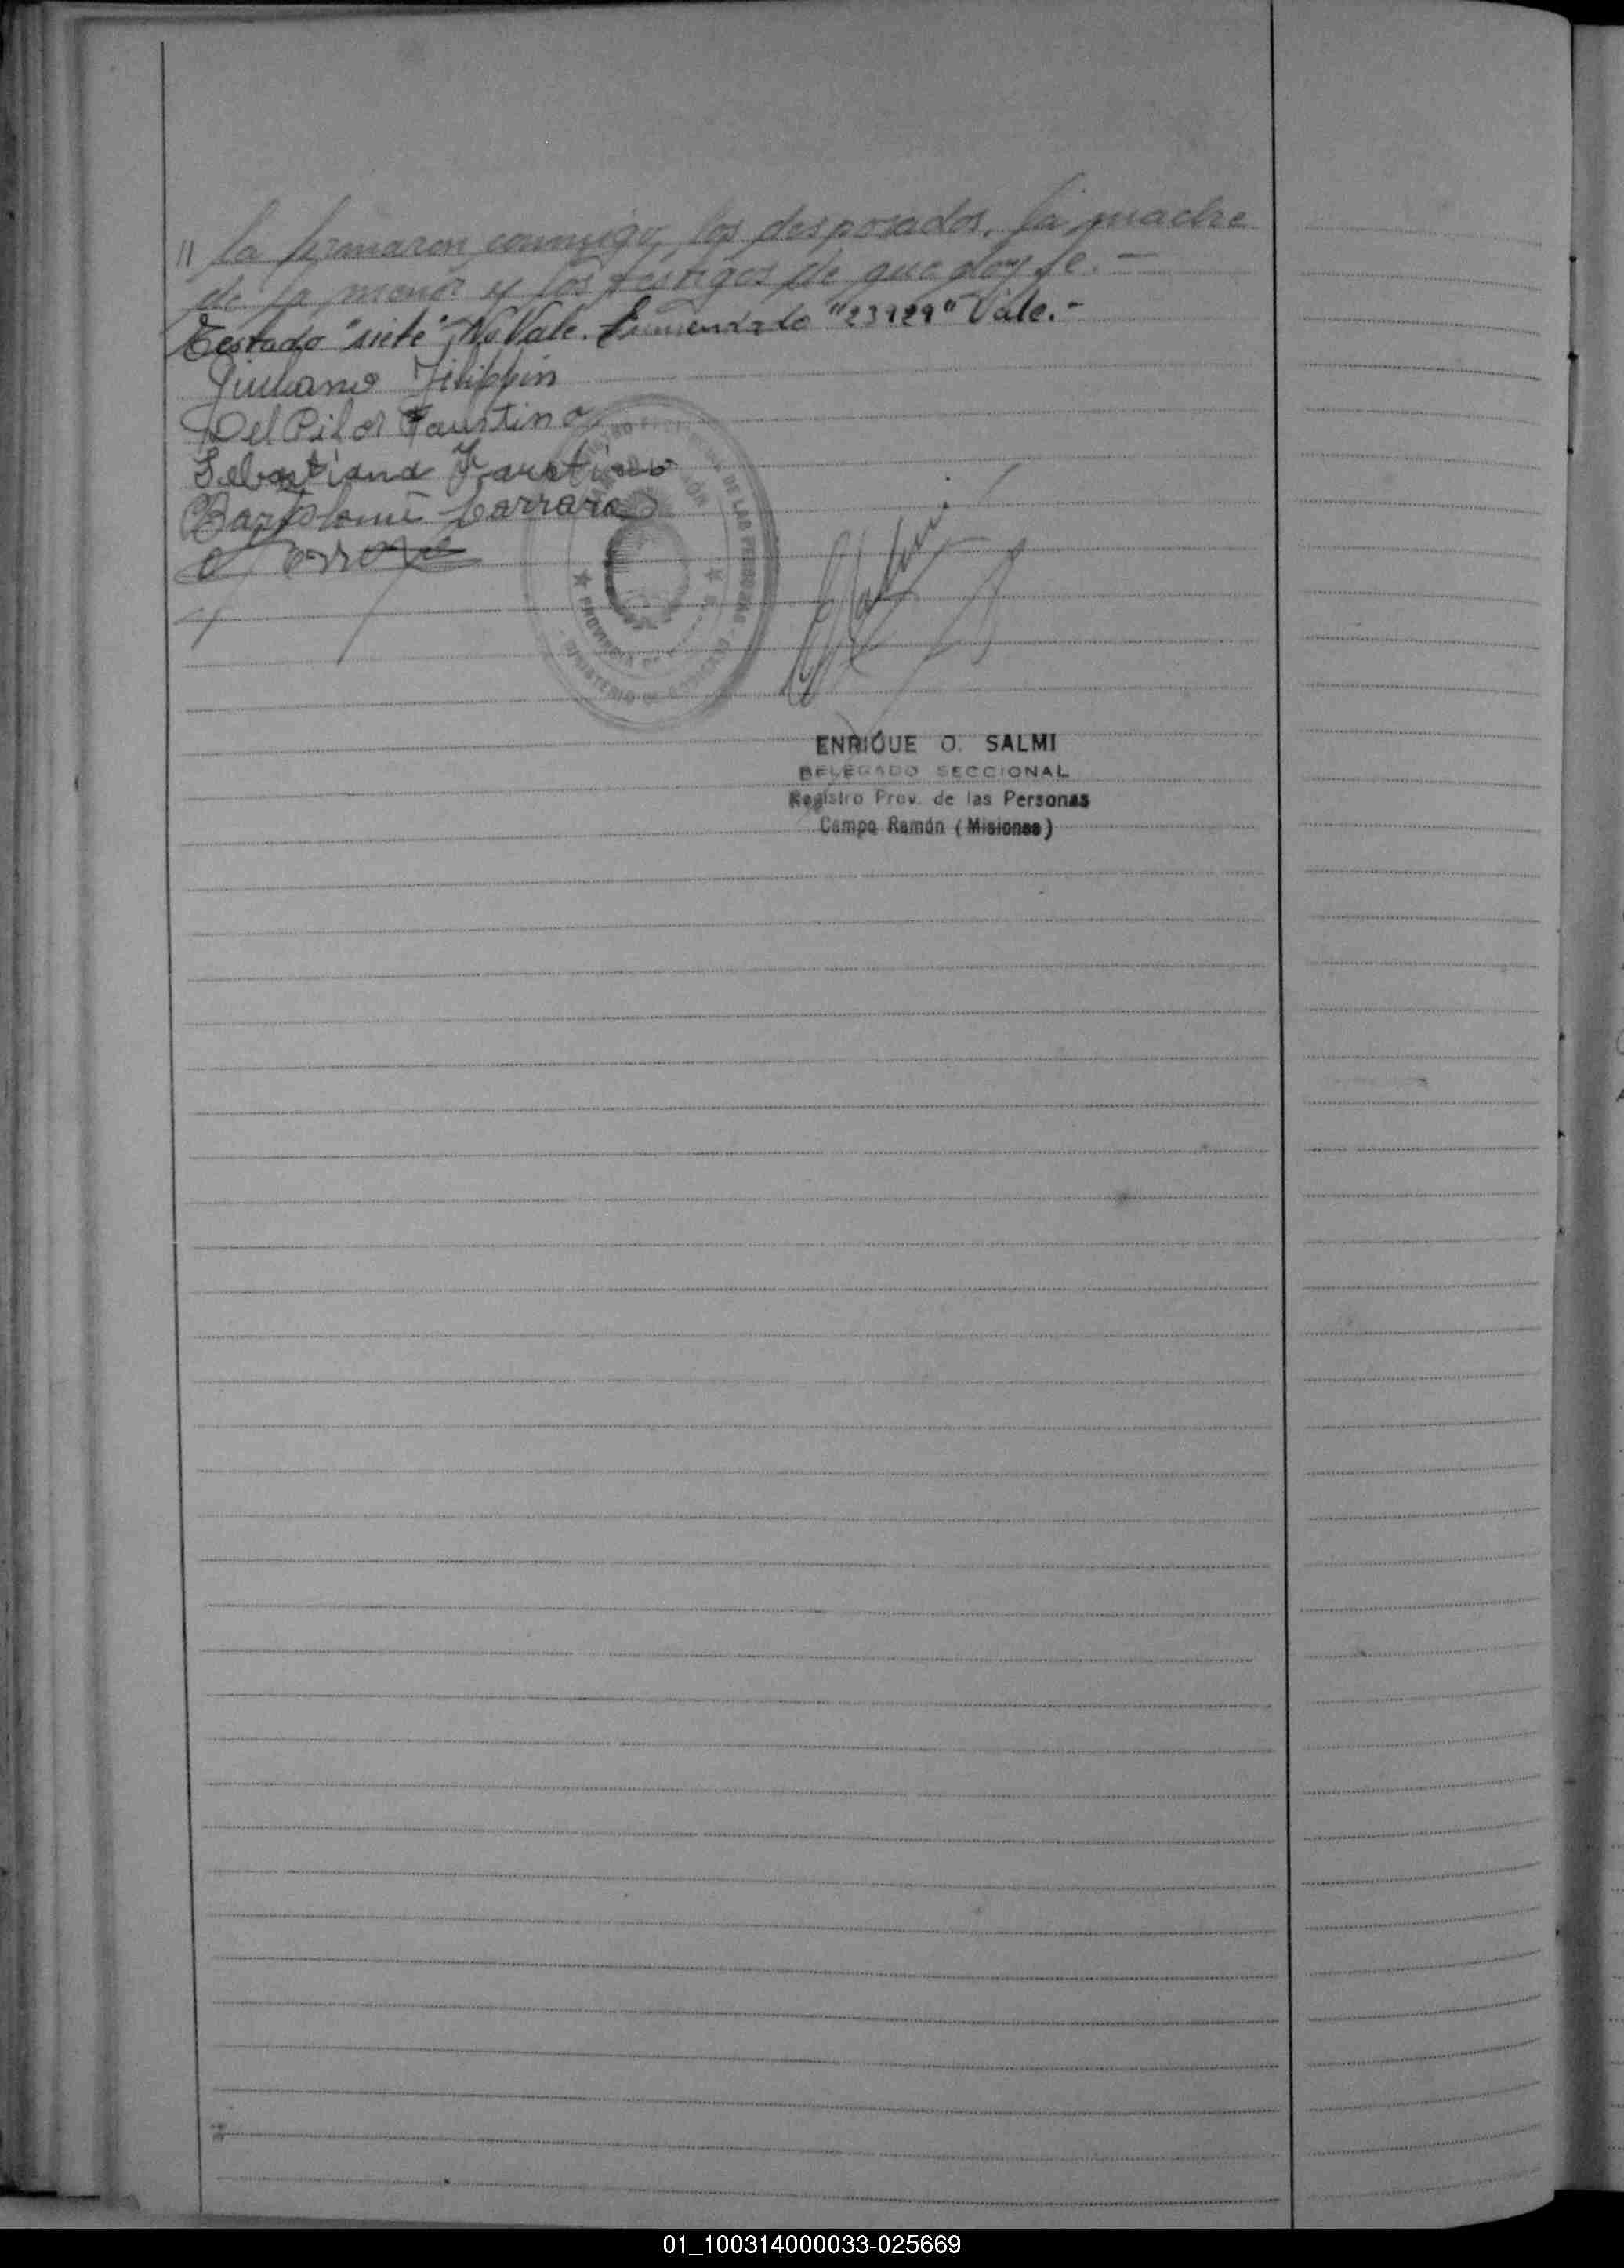 " la firmaron conmigo, los desposados, la madre
de la menor y los testigos de que doy fe. -
Testado "siete" No Vale. Enmendado "23929" Vale. -
Juliano Filippin
Del Pilar Faustino
Sebastiana Faustino
Bartolomé Carrara
DE LAS PERSONAS
PROVINCIA DE
MINISTERIO DE
ENRIQUE O. SALMI
DELEGADO SECCIONAL
Registro Prov. de las Personas
Campo Ramón (Misiones)
01_100314000033-025669